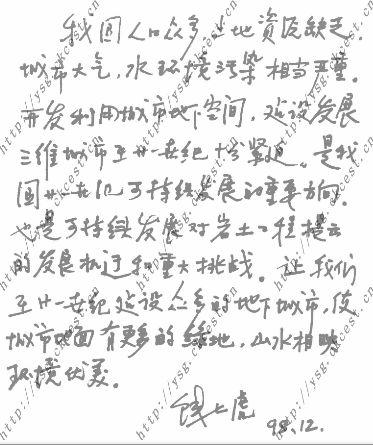 我国人口众多土地资源缺乏.
城市大气,水环境污染相当严重。
开发利用城市地下空间,建设发展
三维城市至廿一世纪十分紧迫。是我
国廿一世纪可持续发展的重要方向.
也是可持续发展对岩土工程提出
的发展机遇和重大挑战。让我们
至廿一世纪建设众多的地下城市,使
城市地面有更多的绿地,山水相映
环境优美。
钱七虎
98.12.
http://ysg.ckcest.cn